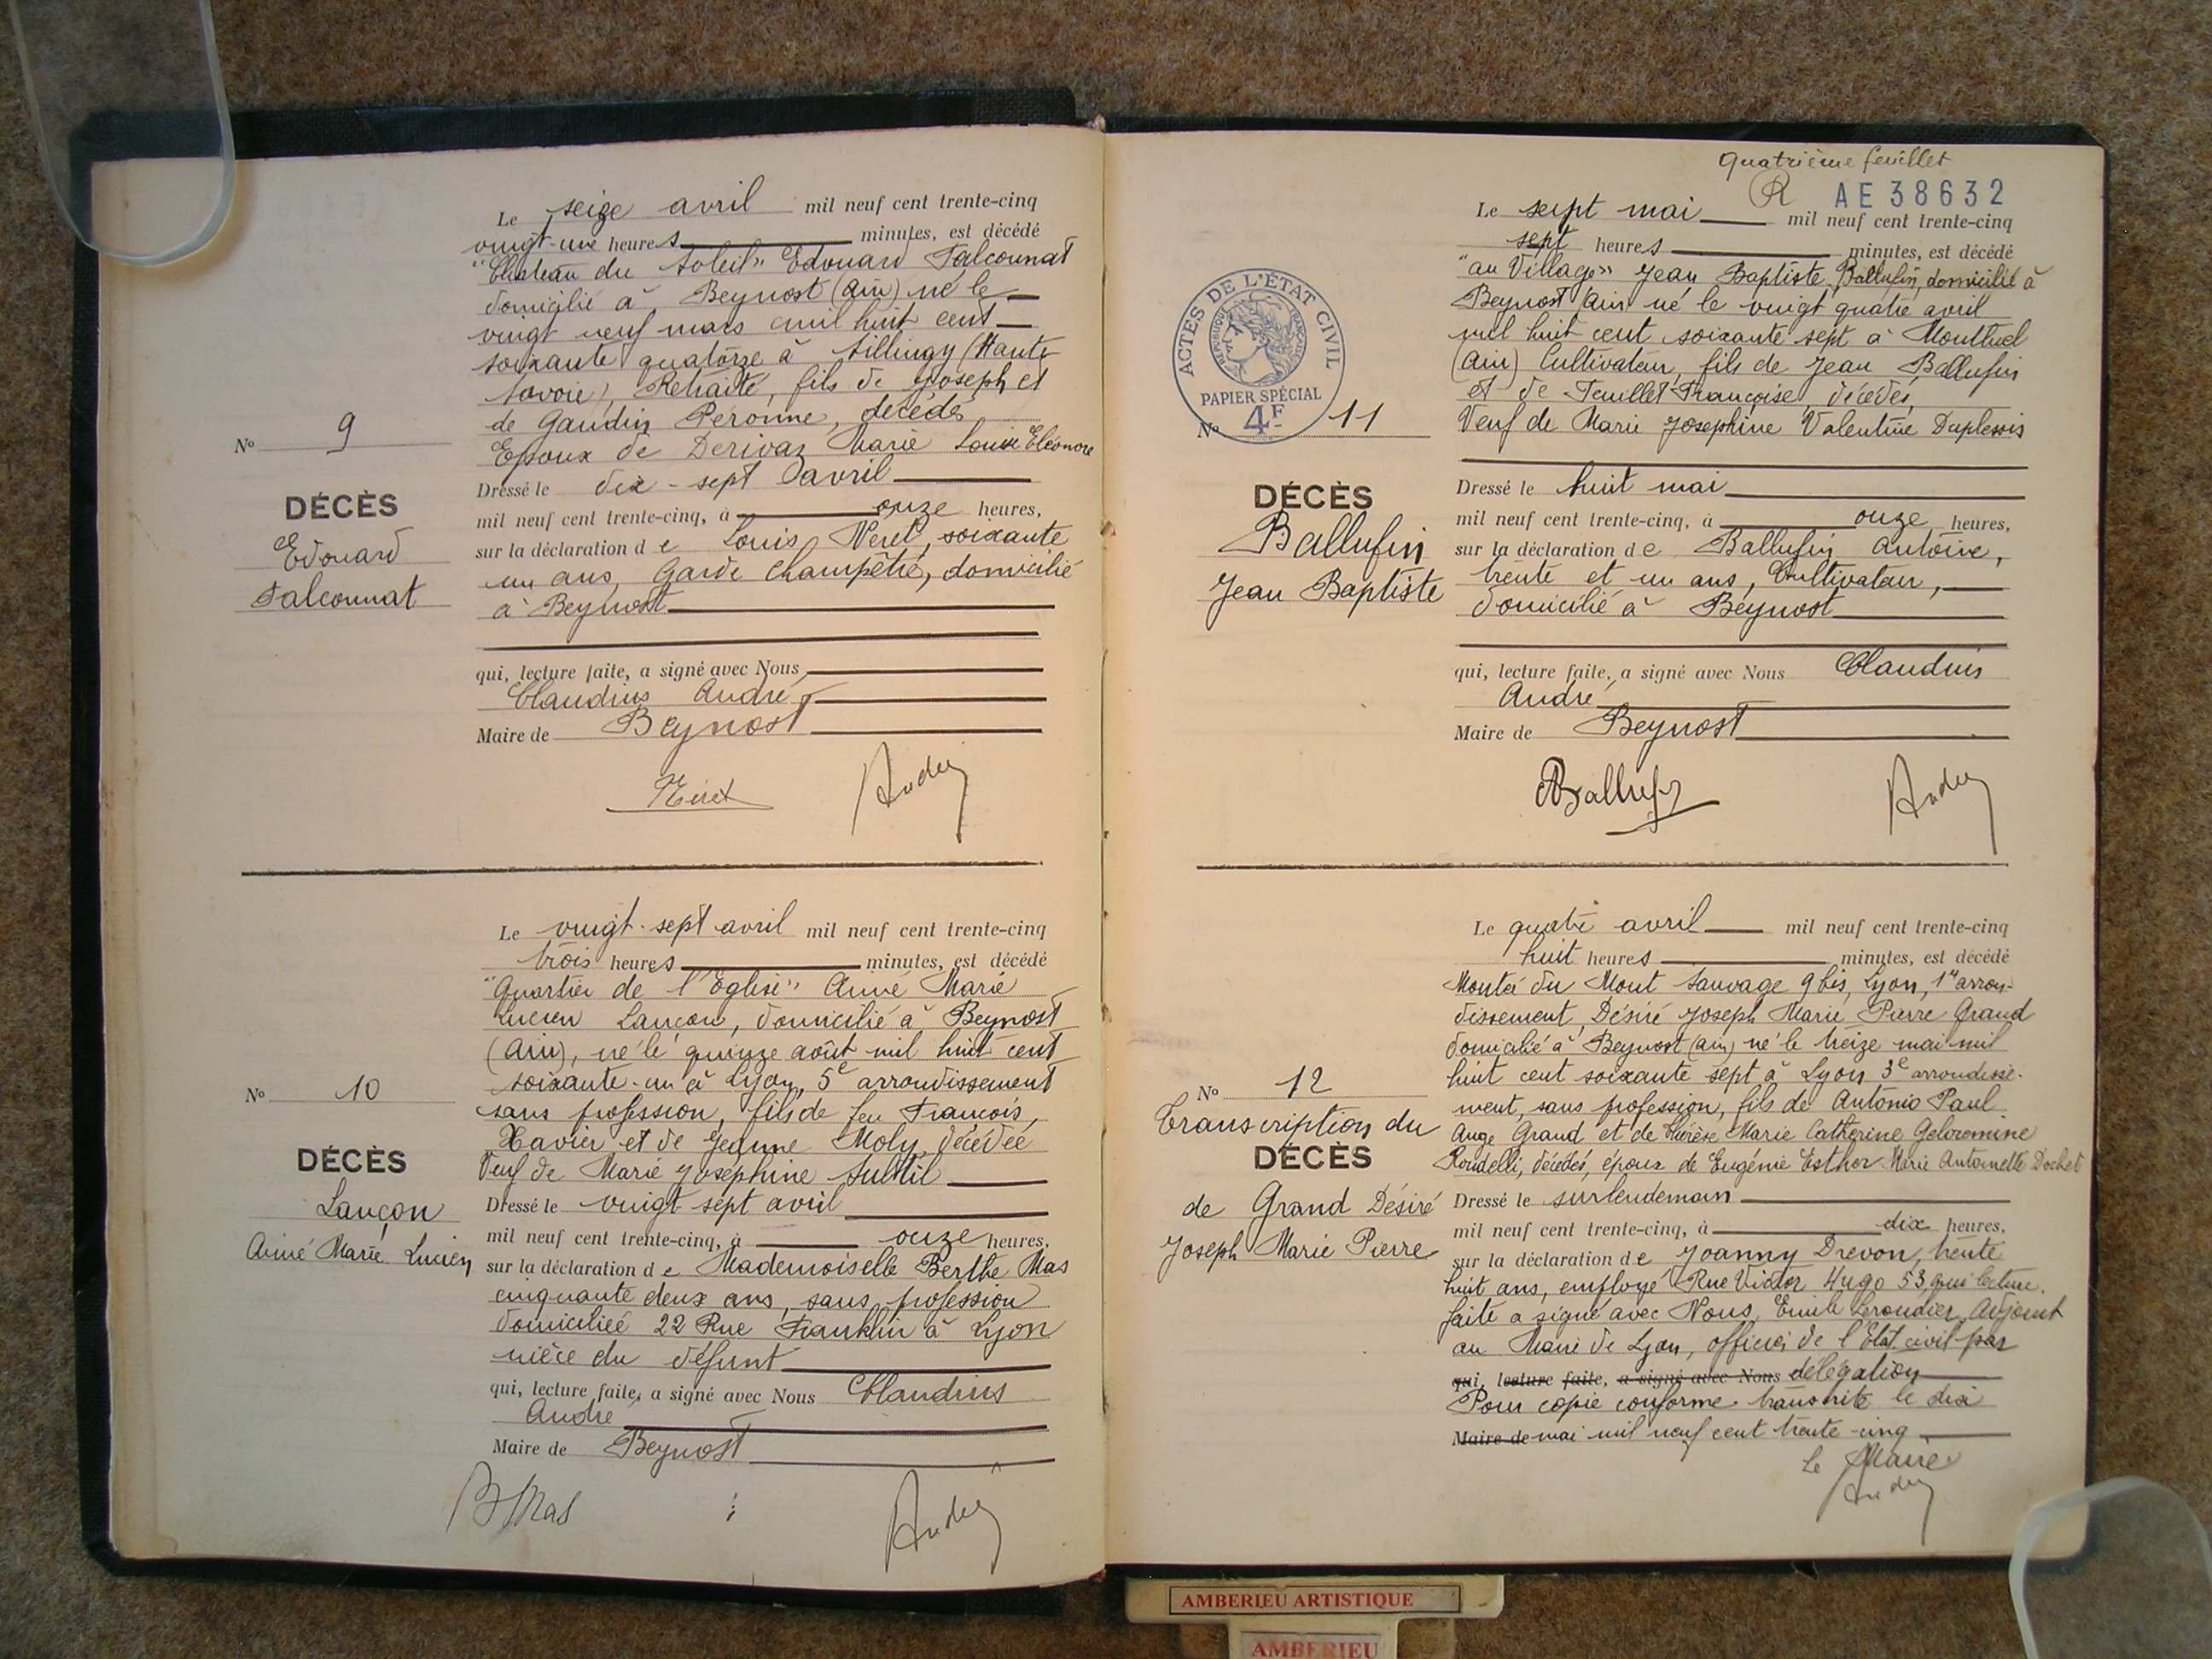 Le seize avril mil neuf cent trente-cinq
vingt-une heures minutes, est décédé
"Château du Soleil" Edouard Falconnat
domicilié à Beynost (Ain) né le
vingt neuf mars mil huit cent
soixante quatorze à Sillingy (Haute
Savoie), Retraité, fils de Joseph et
de Gaudin Peronne, décédés
Epoux de Derivaz Marie Louise Eléonore
N° 9
DÉCÈS
Edouard
Falconnat
Dressé le dix-sept avril
mil neuf cent trente-cinq, à onze heures,
sur la déclaration de Louis Néret, soixante
un ans, Garde Champêtre, domicilié
à Beynost
qui, lecture faite, a signé avec Nous
Claudius André
Maire de Beynost
Néret André
Le vingt-sept avril mil neuf cent trente-cinq
trois heures minutes, est décédé
"Quartier de l'Eglise" Aimé Marie
Lucien Lançon, domicilié à Beynost
(Ain), né le quinze août mil huit cent
soixante-un à Lyon, 5e arrondissement
sans profession, fils de feu François
Xavier et de Jeanne Moly, décédée
Veuf de Marie Joséphine Subtil
N° 10
DÉCÈS
Lançon
Aimé Marie Lucien
Dressé le vingt sept avril
mil neuf cent trente-cinq, à onze heures,
sur la déclaration de Mademoiselle Berthe Mas
cinquante deux ans, sans profession
domiciliée 22 Rue Franklin à Lyon
nièce du défunt
qui, lecture faite, a signé avec Nous Claudius
André
Maire de Beynost
B Mas André
quatrième feuillet
R AE 38632
Le sept mai mil neuf cent trente-cinq
sept heures minutes, est décédé
"au Village" Jean Baptiste Ballufin, domicilié à
Beynost Ain né le vingt quatre avril
mil huit cent soixante sept à Montluel
(Ain) Cultivateur, fils de Jean Ballufin
et de Feuillet Françoise, décédés,
Veuf de Marie Josephine Valentine Duplessis
ACTES DE L'ÉTAT CIVIL
RÉPUBLIQUE FRANÇAISE
PAPIER SPÉCIAL
4F
N° 11
DÉCÈS
Ballufin
Jean Baptiste
Dressé le huit mai
mil neuf cent trente-cinq, à onze heures,
sur la déclaration de Ballufin Antoine,
trente et un ans, Cultivateur,
domicilié à Beynost
qui, lecture faite, a signé avec Nous Claudius
André
Maire de Beynost
Ballufin André
Le quatre avril mil neuf cent trente-cinq
huit heures minutes, est décédé
Montée du Mont Sauvage 9 bis, Lyon, 1er arron-
dissement, Désiré Joseph Marie Pierre Grand
domicilié à Beynost (Ain) né le treize mai mil
huit cent soixante sept à Lyon 3e arrondisse-
ment, sans profession, fils de Antonio Paul
Ange Grand et de Thérèse Marie Catherine
Rondelli, décédés, époux de Eugénie Esther Marie Antoinette Dochet
N° 12
Transcription du
DÉCÈS
de Grand Désiré
Joseph Marie Pierre
Dressé le surlendemain
mil neuf cent trente-cinq, à dix heures,
sur la déclaration de Joanny Drevon, trente
huit ans, employé Rue Victor Hugo 53, qui lecture
faite a signé avec Nous, Emile Leroudier, Adjoint
au Maire de Lyon, officier de l'Etat civil par
qui, lecture faite, a signé avec Nous délégation
Pour copie conforme transcrite le dix
Maire de mai mil neuf cent trente-cinq
Le Maire
André
AMBERIEU ARTISTIQUE
AMBERIEU